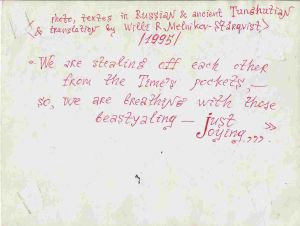 photo, textes in Russian & ancient Tunahutian
& translation by Willi R. Melnikov-Stárqvist
/1995/
"We are stealing off each other
from the Time's pockets, —
so, we are breathing with those
beastyaling — just
joying,,, »